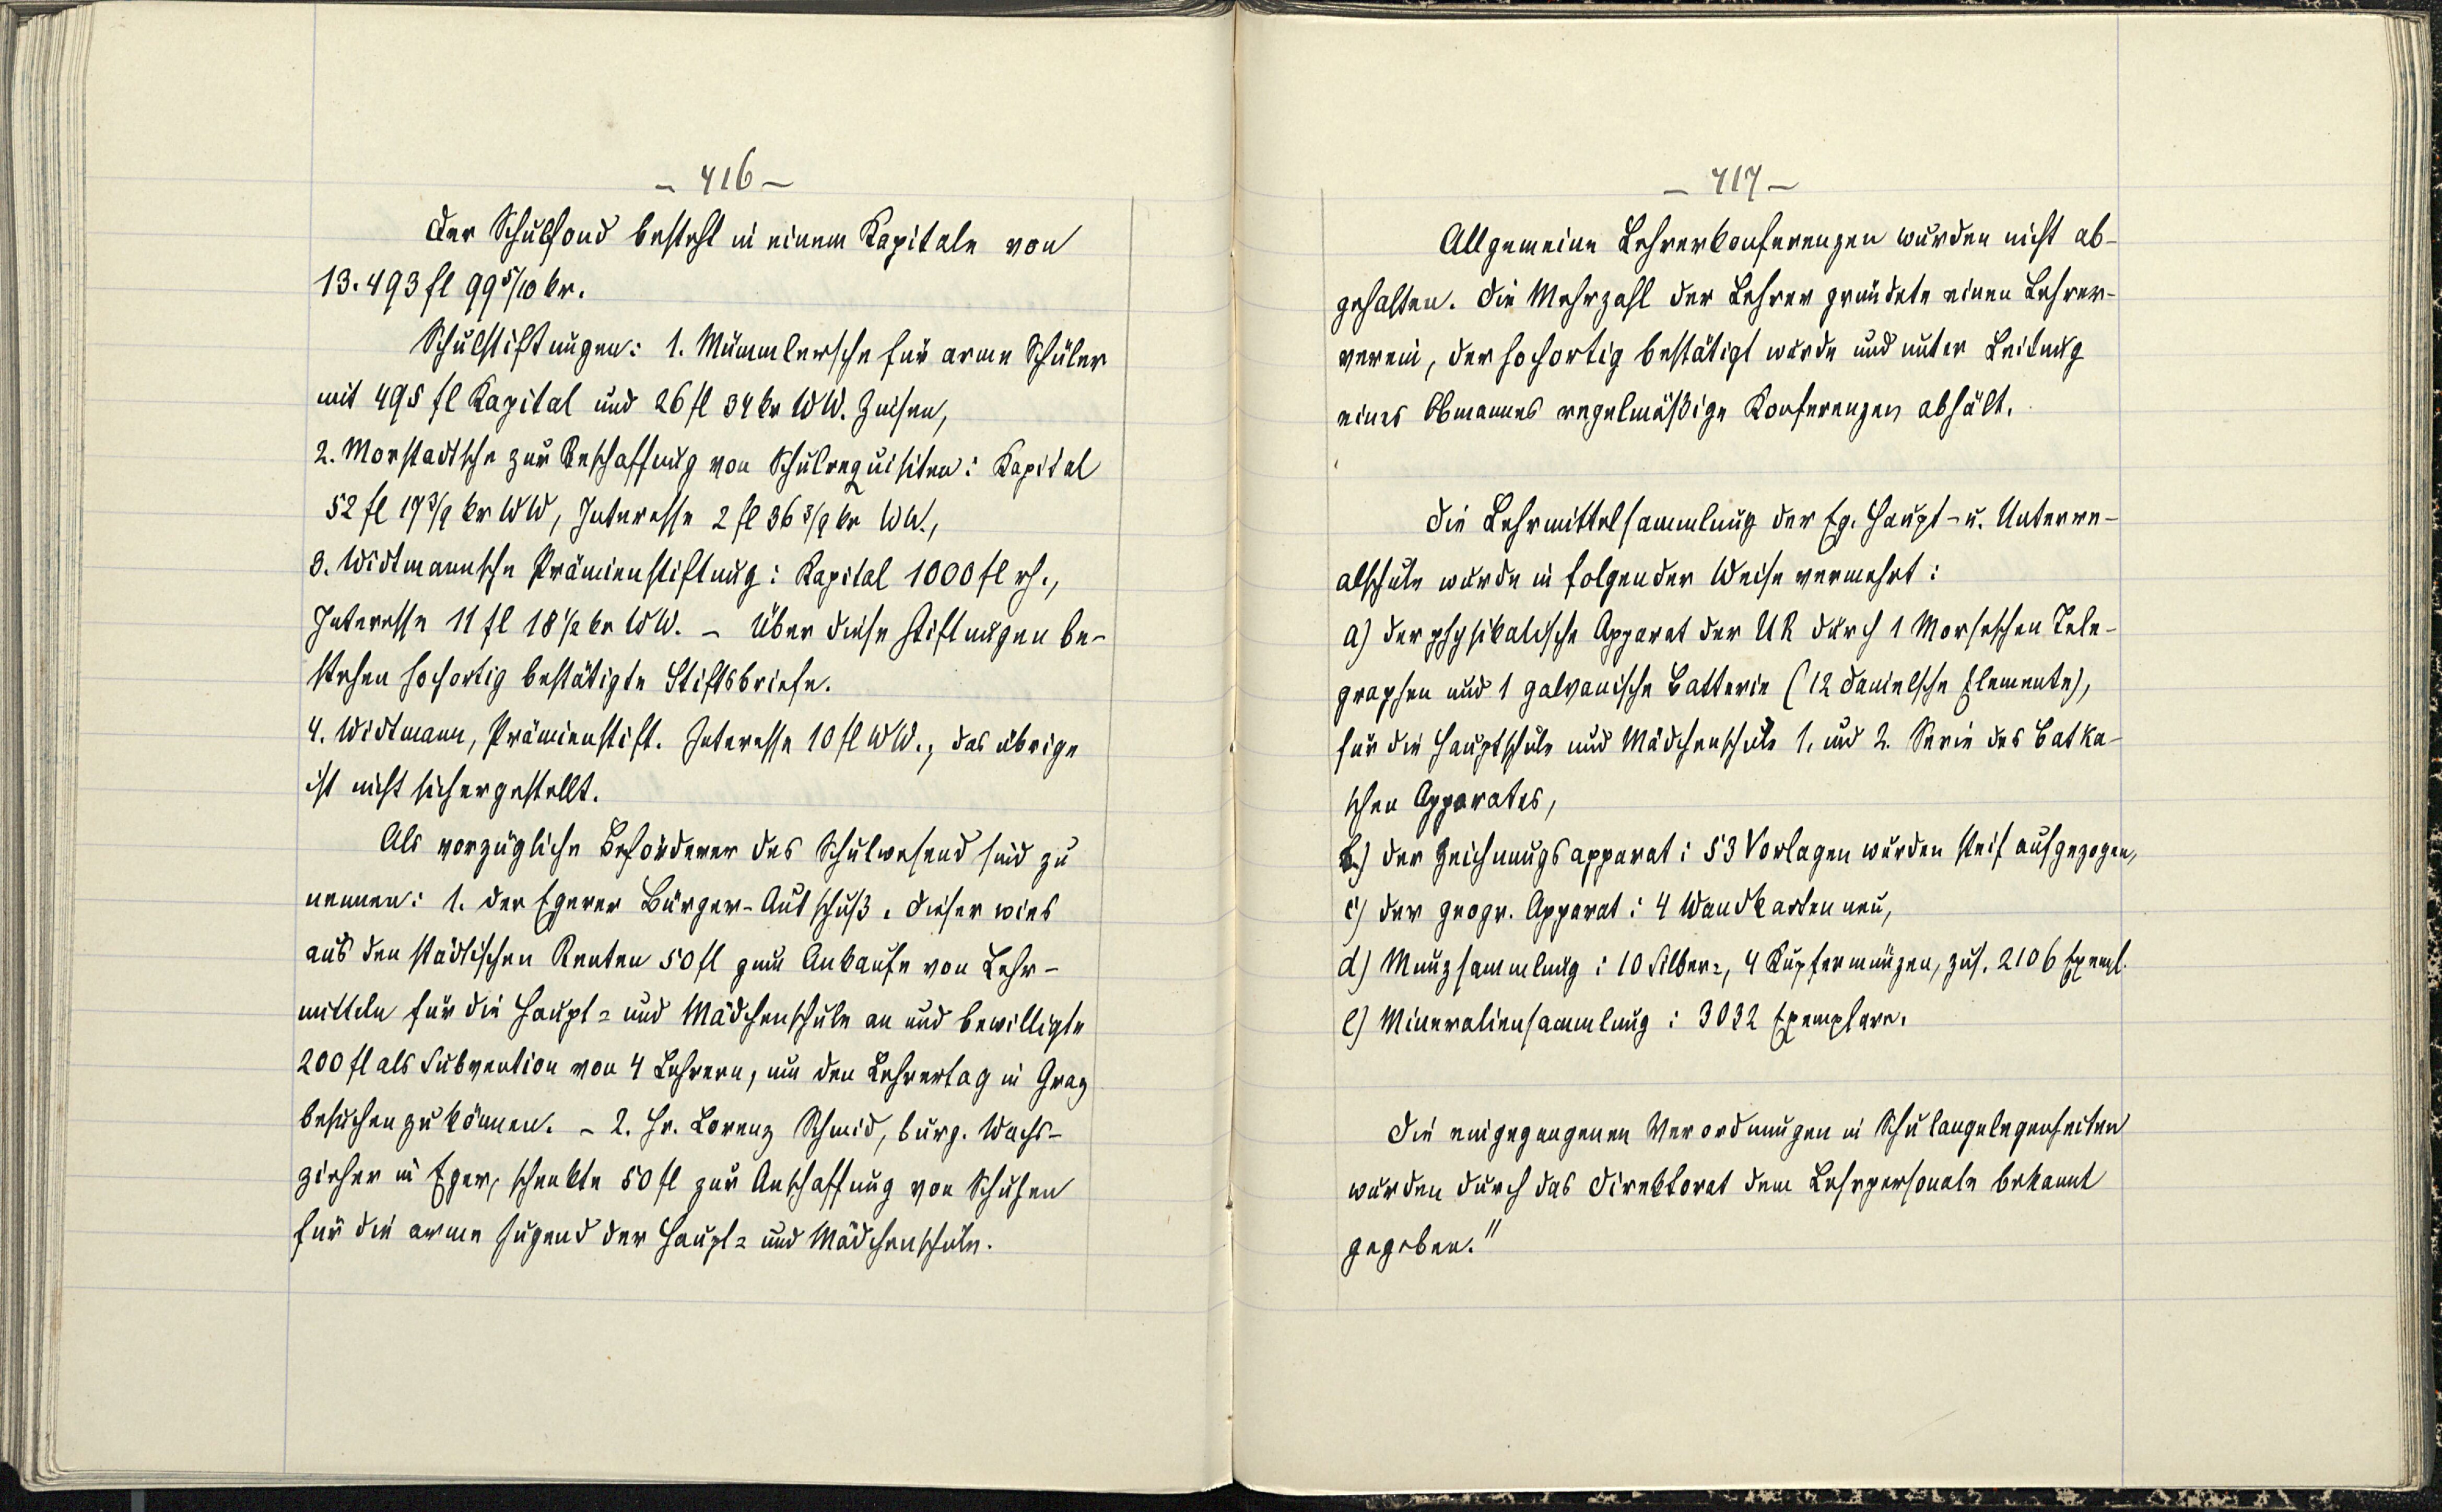 - 416 -
Der Schulfond besteht in einem Kapitale von
13.493 fl 99 5/10 kr.
Schulstiftungen: 1. Mümmlersche für arme Schüler
mit 495 fl Kapital und 26 fl 34 kr WW. Zinsen,
2. Morstadtsche zur Beschaffung von Schulrequisiten: Kapital
52 fl 19 3/9 kr WW, Interesse 2 fl 36 3/9 kr WW.,
3. Widtmannsche Prämienstiftung: Kapital 1000 fl rh.,
Interesse 11 fl 18 1/2 kr WW. - Über diese Stiftungen be-
stehen hochortig bestätigte Stiftsbriefe.
4. Widtmann, Prämienstift. Interesse 10 fl WW., das übrige
ist nicht sichergestellt.
Als vorzügliche Beförderer des Schulwesend sind zu
nennen: 1. der Egerer Bürger-Autschuß. Dieser wies
aus den städtischen Renten 50 fl zum Ankaufe von Lehr-
mitteln für die Haupt= und Mädchenschule an und bewilligte
200 fl als Subvention von 4 Lehrern, um den Lehrertag in Graz
besuchen zu können. - 2. Hr. Lorenz Schmid, bürg. Wachs-
zieher in Eger, schenkte 50 fl zur Anschaffung von Schuhen
für die arme Jugend der Haupt= und Mädchenschule.
- 417 -
Allgemeine Lehrerkonferenzen wurden nicht ab-
gehalten. Die Mehrzahl der Lehrer gründete einen Lehrer-
verein, der hochortig bestätigt wurde und unter Leitung
eines Obmannes regelmäßige Konferenzen abhält.
Die Lehrmittelsammlung der Eg. Haupt- u. Unterre-
alschule wurde in folgender Weise vermehrt:
a) der physikalische Apparat der UR durch 1 Morseschen Tele-
graphen und 1 galvanische Batterie (12 danielsche Elemente),
für die Hauptschule und Mädchenschule 1. und 2. Serie des Batka-
schen Apparates,
b) der Zeichnungsapparat: 53 Vorlagen wurden steif aufgezogen,
c) der geogr. Apparat: 4 Wandkarten neu,
d) Münzsammlung: 10 Silber=, 4 Kupfermünzen, zus. 2106 Exempl.
e) Mineraliensammlung: 3032 Exemplare.
Die eingegangenen Verordnungen in Schulangelegenheiten
wurden durch das Direktorat dem Lehrpersonale bekannt
gegeben."